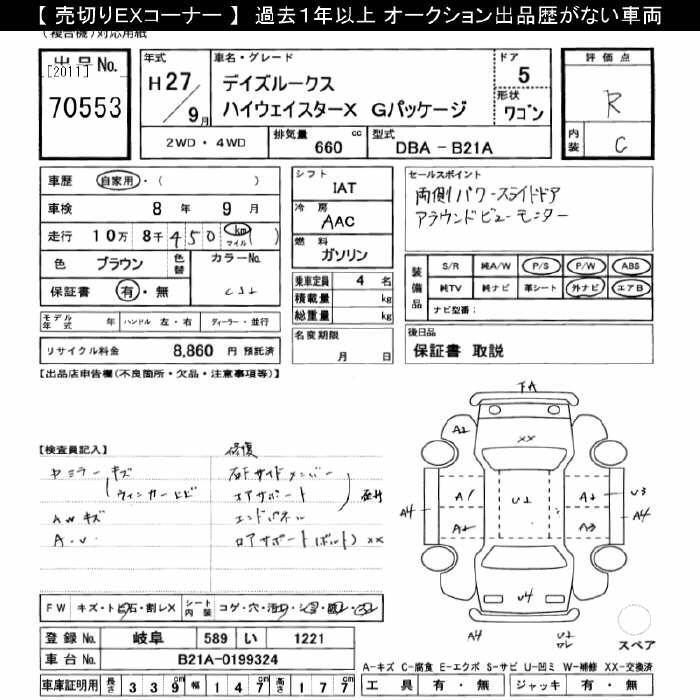 【 売切りEXコーナー 】 過去1年以上 オークション出品歴がない車両
(複合機)対応用紙
出品No.
[2011]
70553
年式
H27/9月
車名・グレード
デイズルークス
ハイウェイスターX Gパッケージ
ドア
5
形状
ワゴン
2WD・4WD
排気量 660 cc
型式 DBA-B21A
評価点
R
内装
C
車歴 自家用・( )
車検 8年 9月
走行 10万 8千 450 km マイル ( )
色 ブラウン 色替 カラーNo.
保証書 有・無
モデル年式 年 ハンドル 左・右 ディーラー・並行
リサイクル料金 8,860 円 預託済
シフト
IAT
冷房
AAC
燃料
ガソリン
乗車定員 4 名
積載量 kg
総重量 kg
名変期限
月 日
セールスポイント
両側パワースライドドア
アラウンドビューモニター
装備品
S/R 純A/W P/S P/W ABS
純TV 純ナビ 革シート 外ナビ エアB
ナビ型番:
後日品
保証書 取説
【出品店申告欄(不良箇所・欠品・注意事項等)】
【検査員記入】
ヤミラーキズ
ウィンカーヒビ
AWキズ
A・U
修復
右Fサイドメンバー
コアサポート
エンドパネル
ロアサポート(ボルト) XX
FA
A2
XX
A1
A2
U2
A2
A3
U3
A4
A4
U4
A4
U2
スペア
FW キズ・トビ石・割レX
シート内装 コゲ・穴
登録No. 岐阜 589 い 1221
車台No. B21A-0199324
車庫証明用 長さ 339cm 幅 147cm 高さ 177cm
A-キズ C-腐食 E-エクボ S-サビ U-凹ミ W-補修 XX-交換済
工具 有・無 ジャッキ 有・無